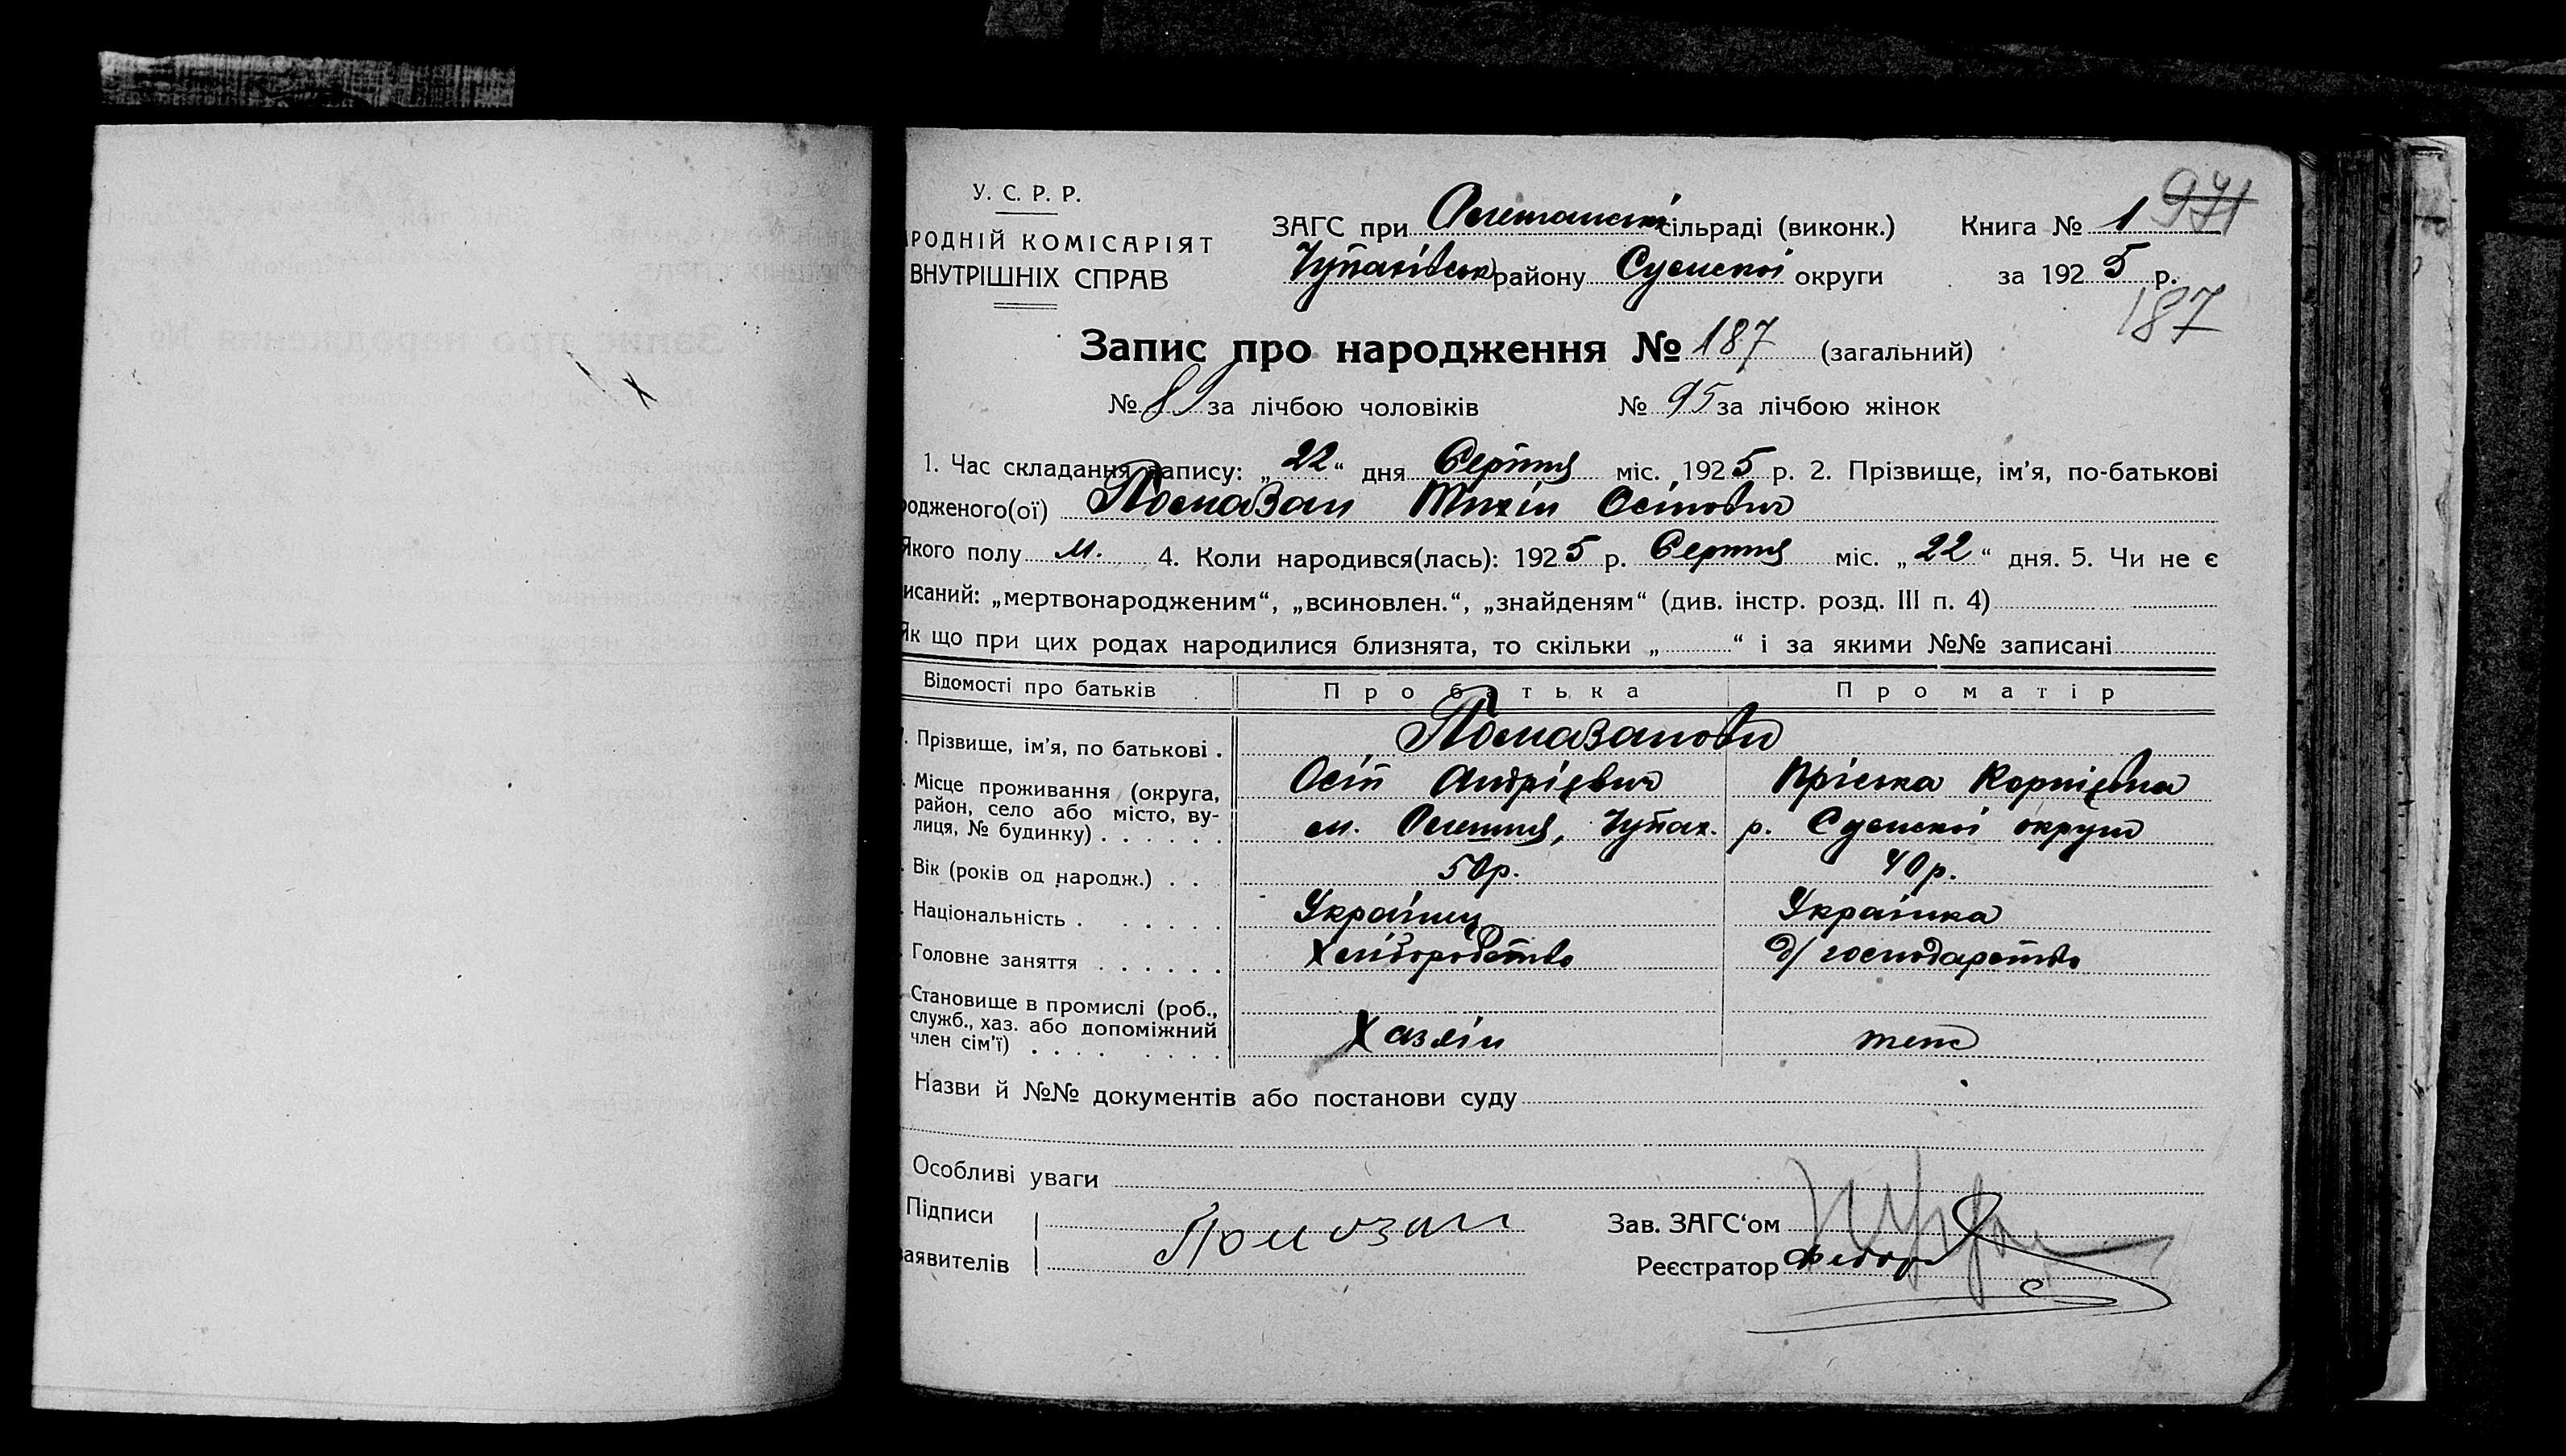 У. С. Р. Р.
РОДНІЙ КОМІСАРІЯТ
ВНУТРІШНІХ СПРАВ
ЗАГС при сільраді (виконк.) Книга № 1 971
Чупахівськ району Сумської округи за 1925 р.
187
Запис про народження № 187 (загальний)
№ за лічбою чоловіків № 95 за лічбою жінок
1. Час складання запису: „22“ дня Серпня міс. 1925 р. 2. Прізвище, ім’я, по-батькові
родженого(ої) Помазан Тихін Осіпович
Якого полу м. 4. Коли народився(лась): 1925 р. Серпня міс. „22“ дня. 5. Чи не є
исаний: „мертвонародженим“, „всиновлен.“, „знайденям“ (див. інстр. розд. III п. 4)
Як що при цих родах народилися близнята, то скільки „ “ і за якими №№ записані
Відомості про батьків Про батька Про матір
Прізвище, ім’я, по батькові . Помазанови
Місце проживання (округа, Осіп Андрієвич Пріська Корнієвна
район, село або місто, ву-
лиця, № будинку) . . . . . . м. Чупах. р. Сумської округи
Вік (років од народж.) . . 50 р. 40 р.
Національність . . . . . . Українец Українка
Головне заняття . . . . . . Хліборобство д/господарство
Становище в промислі (роб.,
служб., хаз. або допоміжний
член сім’ї) . . . . . . . . Хазяїн
Назви й №№ документів або постанови суду
Особливі уваги
Підписи Помозан Зав. ЗАГС‘ом
заявителів Реєстратор